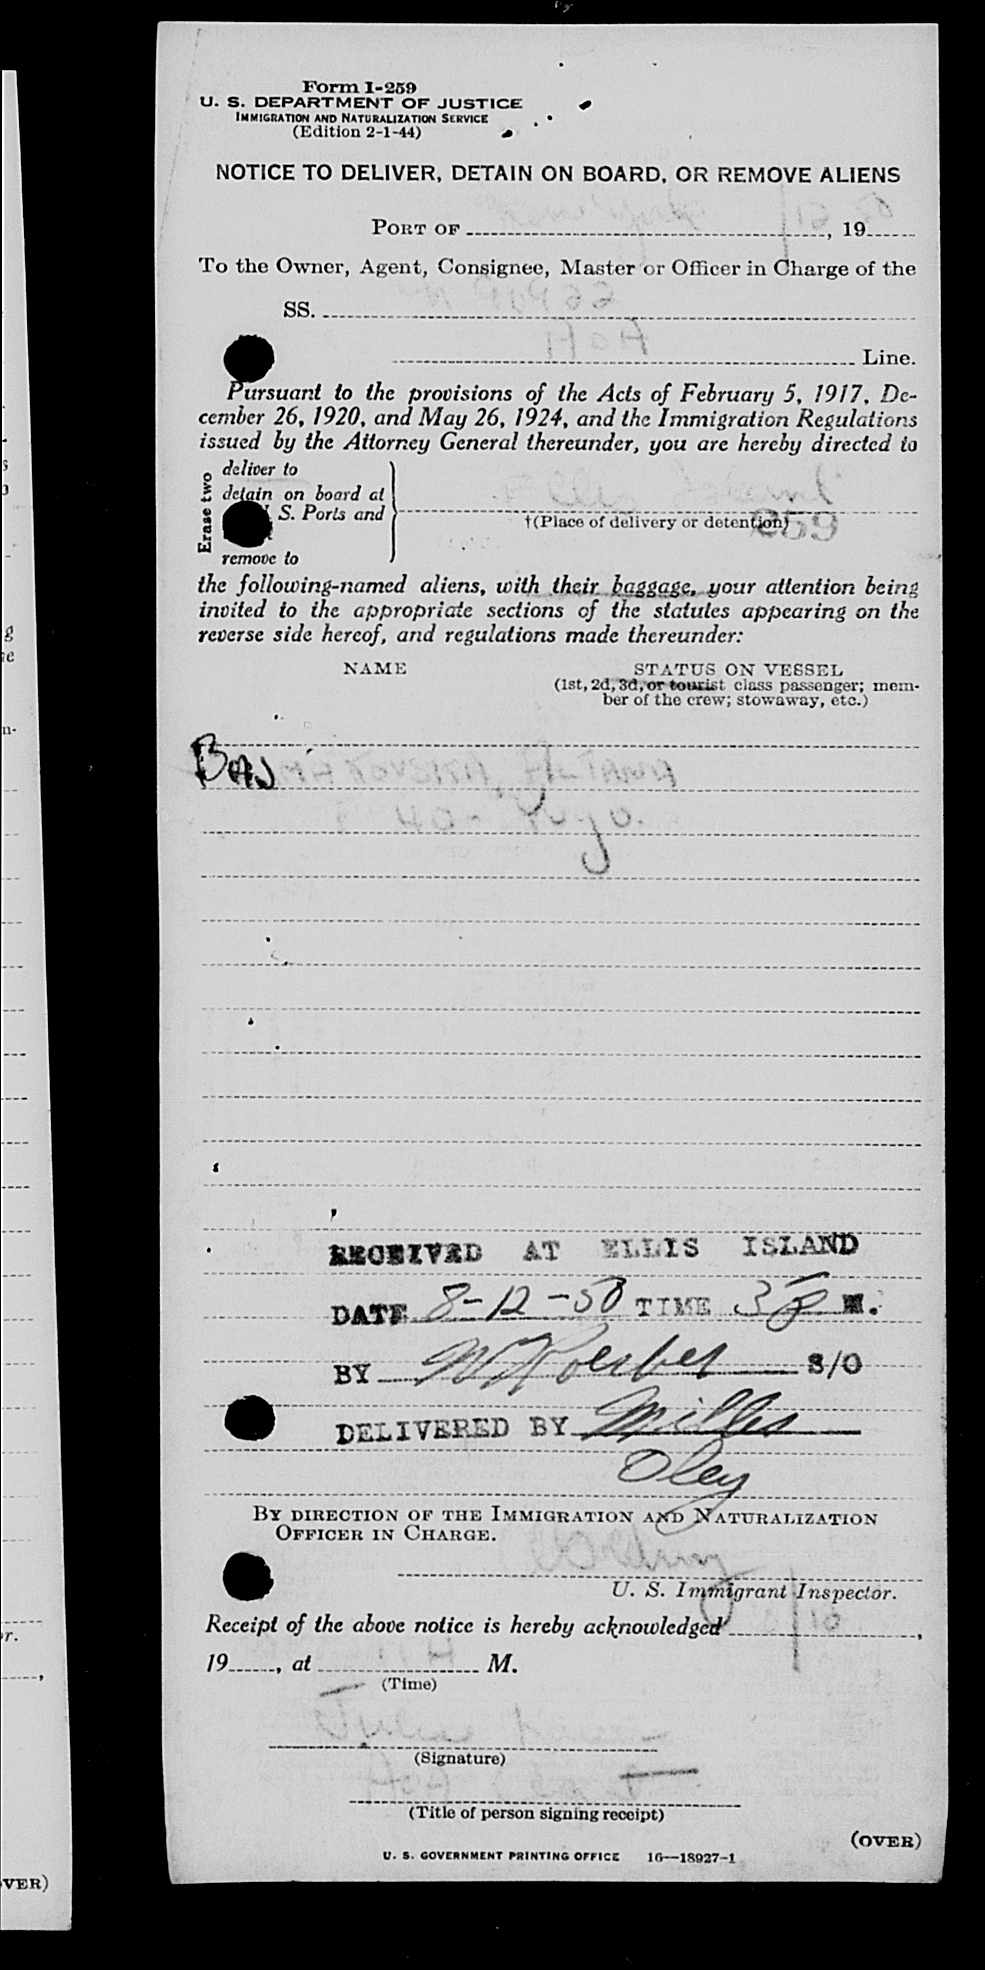 Form I-259
U. S. DEPARTMENT OF JUSTICE
IMMIGRATION AND NATURALIZATION SERVICE
(Edition 2-1-44)
NOTICE TO DELIVER, DETAIN ON BOARD, OR REMOVE ALIENS
PORT OF ........, 19......
To the Owner, Agent, Consignee, Master or Officer in Charge of the
SS. ........
........ Line.
Pursuant to the provisions of the Acts of February 5, 1917, De-
cember 26, 1920, and May 26, 1924, and the Immigration Regulations
issued by the Attorney General thereunder, you are hereby directed to
Erase two
deliver to
detain on board at
S. Ports and
remove to
†(Place of delivery or detention)
the following-named aliens, with their baggage, your attention being
invited to the appropriate sections of the statutes appearing on the
reverse side hereof, and regulations made thereunder:
NAME STATUS ON VESSEL
(1st, 2d, 3d, or tourist class passenger; mem-
ber of the crew; stowaway, etc.)
RECEIVED AT ELLIS ISLAND
DATE 8-12-50 TIME 3 P M.
BY W Koerber S/O
DELIVERED BY Milles
Oley
BY DIRECTION OF THE IMMIGRATION AND NATURALIZATION
OFFICER IN CHARGE.
U. S. Immigrant Inspector.
Receipt of the above notice is hereby acknowledged ........,
19......, at ........ M.
(Time)
(Signature)
(Title of person signing receipt)
(OVER)
U. S. GOVERNMENT PRINTING OFFICE 16—18927-1